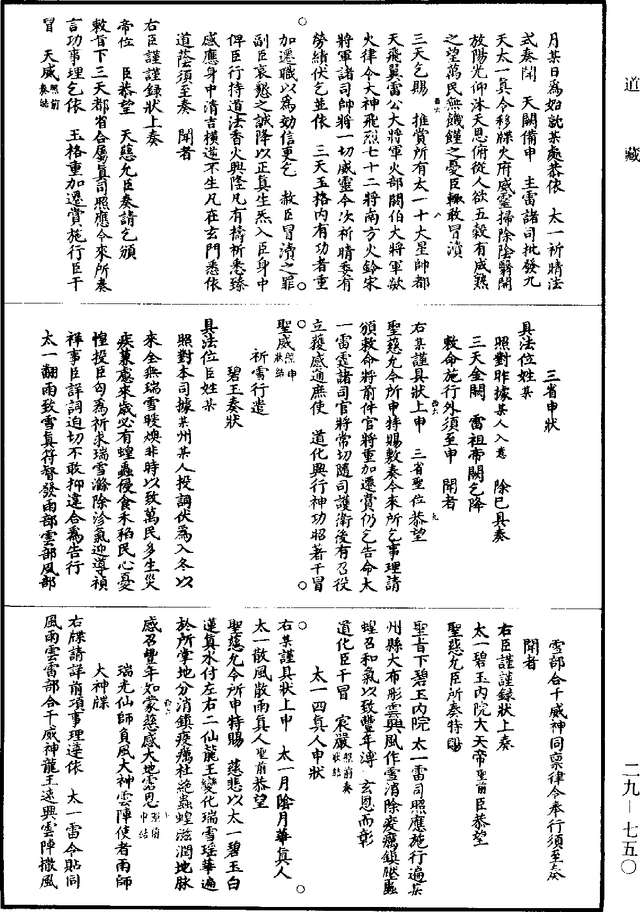 道藏
月某日為始就某處恭依　太一祈晴法
式奏聞　天闕備申　主雷諸司批發九
天太一真令移牒火府威靈掃除陰翳開
放陽光仰沐天恩俯從人欲五穀有成熟
之望萬民無饑饉之憂臣輒敢冒瀆
三天乞賜　推賞所有太一十大星帥都
天飛翼雷公大將軍火部閼伯大將軍欻
火律令大神飛烈七十二將南方火鈴宋
將軍諸司帥將一切威靈今次祈晴委有
勞績伏乞並依　三天玉格內有功者重
加遷職以為効信更乞　赦臣冒瀆之罪
副臣哀懇之誠降以正真生炁入臣身中
俾臣行持道法香火興隆凡有禱祈悉臻
感應身中清吉橫遂不生凡在玄門悉依
道蔭須至奏　聞者
右臣謹謹錄狀上奏
帝位　臣恭望　天慈允臣奏請乞頒
敕旨下三天都省合屬真司照應今來所奏
言功事理乞依　玉格重加遷賞施行臣干
冒　天威照前奏結
三省申狀
具法位姓某
照對昨據某人入意　除已具奏
三天金闕　雷祖帝闕乞降
敕命施行外須至申　聞者
右某謹具狀上申　三省聖位恭望
聖慈允今所申特賜敷奏今來所乞事理請
頒敕命將前件官將重加遷賞仍乞告命太
一雷霆諸司官將常切隨司護衛後有召役
立獲感通庶使　道化興行神功昭著干冒
聖威照申狀結
祈雪行遣
碧玉奏狀
具法位臣姓某
照對本司據某州某人投詞伏為入冬以
來全無瑞雪暖燠非時以致萬民多生災
疾菓慮來歲必有蝗蟲侵食禾稻民心憂
惶投臣匃為祈求瑞雪滌除沴氣迎導禎
祥事臣詳詞迫切不敢抑違合為告行
太一翻雨致雪真符督發雨部雲部風部
雪部合干威神同稟律令奉行須至奏
聞者
右臣謹謹錄狀上奏
太一碧玉內院大天帝聖前臣恭望
聖慈允臣所奏特賜
聖旨下碧玉內院太一雷司照應施行遍某
州縣大布彤雲興風作雪消除疫癘鎮壓蟲
蝗召和氣以致豐年溥　玄恩而彰
道化臣干冒　宸嚴照前奏狀結
太一四真人申狀
右某謹具狀上申　太一月陰月華真人
太一散風散雨真人聖前恭望
聖慈允今所申特賜　慈悲以太一碧玉白
蓮真水付左右二仙龍王變化瑞雪瑤華遍
於所掌地分消鎮疫癘杜絕蟲蝗滋潤地脉
感召豐年如蒙慈感大地霑恩照前申結
瑞光仙師負風大神雲陣使者雨師
大神牒
右牒請詳前項事理遵依　太一雷令貼同
風雨雲雷部合干威神龍王速興雲陣撒風
二九—七五〇